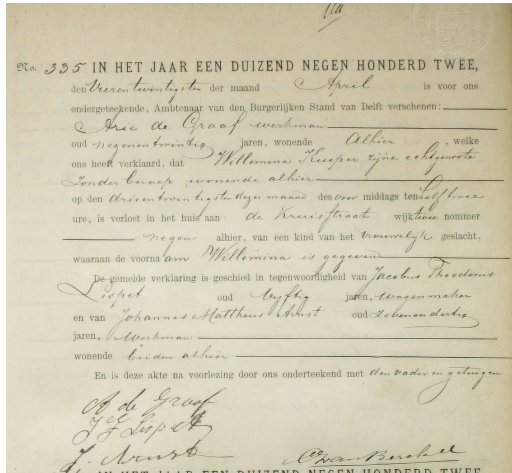 No. 335 IN HET JAAR EEN DUIZEND NEGEN HONDERD TWEE,
den Vierentwintigsten der maand April is voor ons
ondergeteekende, Ambtenaar van den Burgerlijken Stand van Delft verschenen:
Arie de Graaf werkman
oud negenentwintig jaren, wonende Alhier, welke
ons heeft verklaard, dat Willemina Kuiper zijne echtgenoote
Zonder beroep, wonende alhier
op den drieentwintigsten dezer maand des voor middags ten half twee
ure, is verlost in het huis aan de Kruisstraat wijk twee nommer
negen alhier, van een kind van het vrouwelijk geslacht,
waaraan de voornaam Willemina is gegeven
De gemelde verklaring is geschied in tegenwoordigheid van Jacobus Theodorus
Lispet oud vijftig jaren, wagenmaker
en van Johannes Mattheus Arnst oud Zevenendertig
jaren, werkman
wonende beiden alhier
En is deze akte na voorlezing door ons onderteekend met den vader en getuigen
A de Graaf
J T Lispet
J. Arnst
van Berckel
IN HET JAAR EEN DUIZEND NEGEN HONDERD TWEE